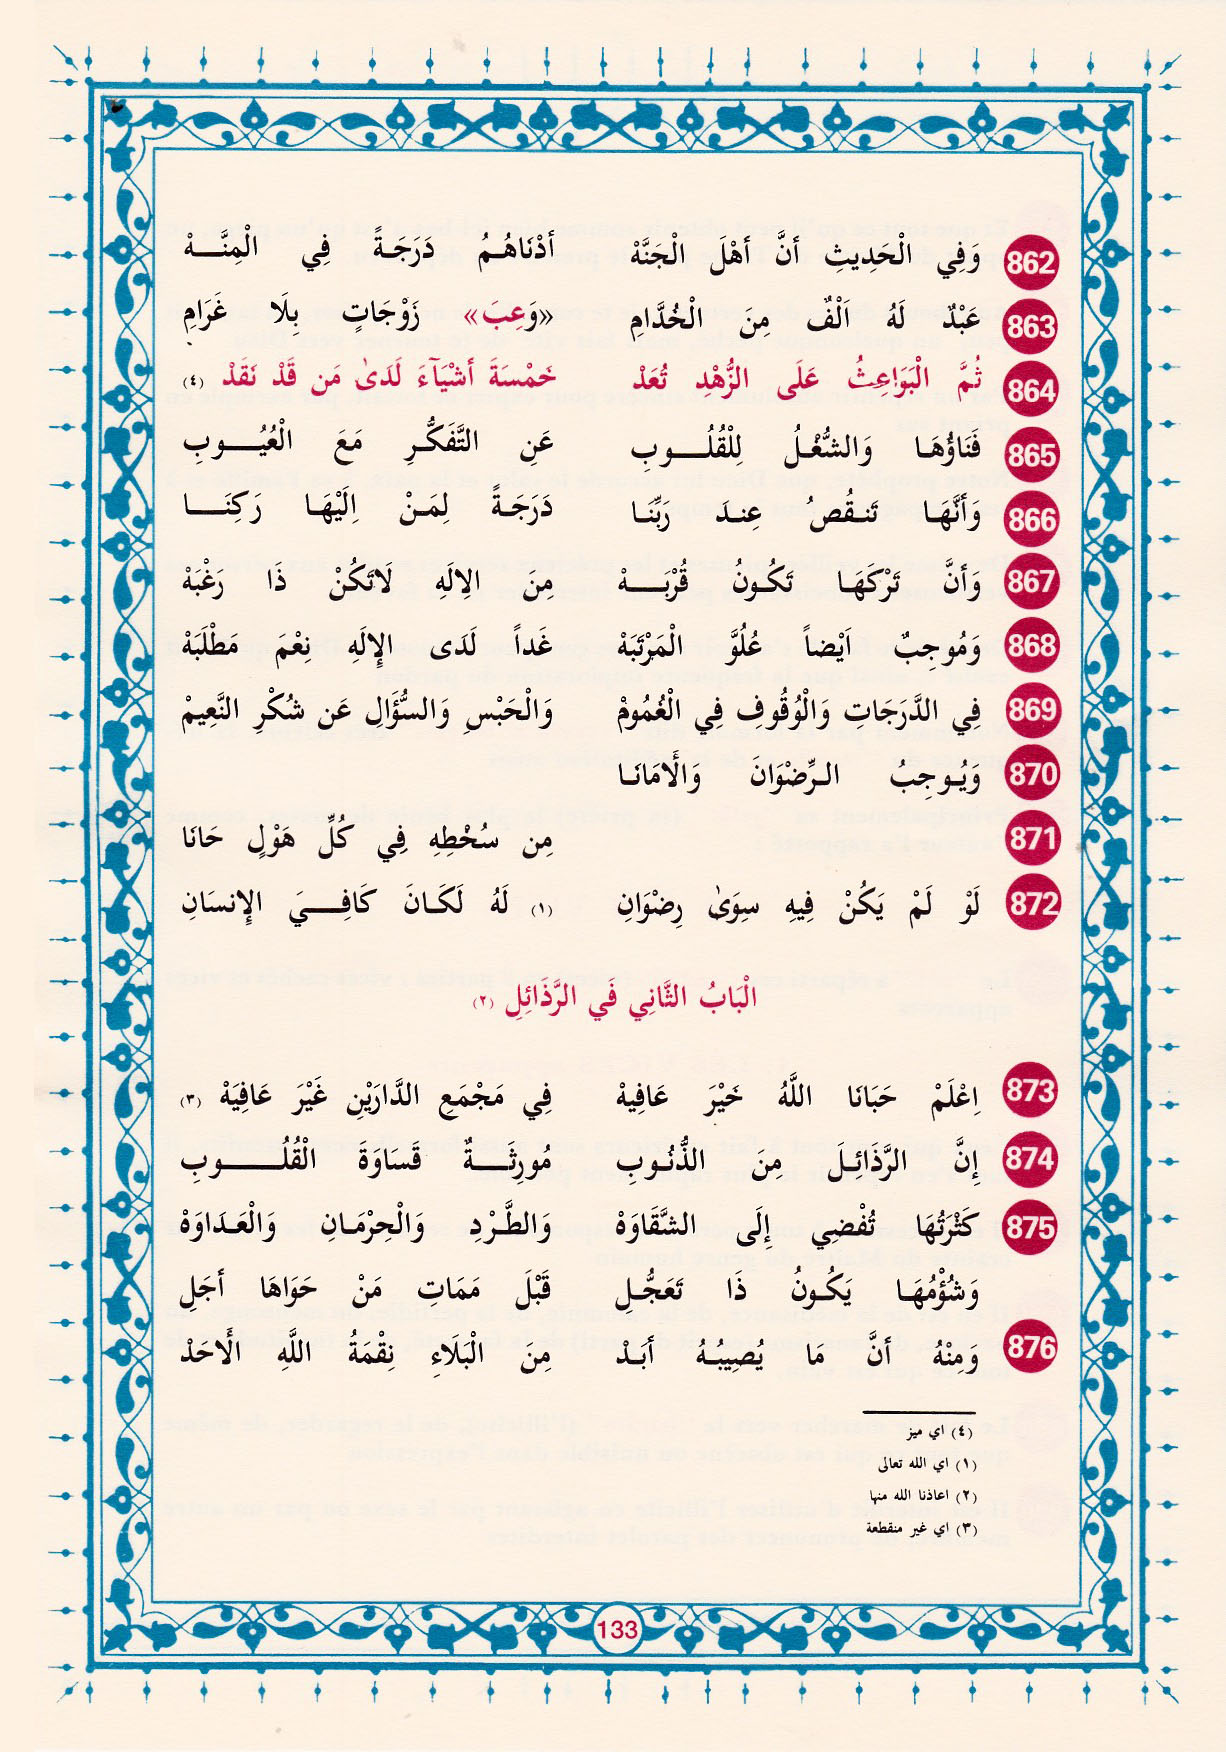 862 وَفِي الْحَدِيثِ أَنَّ أَهْلَ الجَنَّهْ أَدْنَاهُمُ دَرَجَةً فِي الْمِنَّهْ
863 عَبْدٌ لَهُ اَلْفٌ مِنَ الْخُدَّامِ «وَعِبَ» زَوْجَاتٍ بِلَا غَرَامِ
864 ثُمَّ الْبَوَاعِثُ عَلَى الزُّهْدِ تُعَدْ خَمْسَةَ أَشْيَآءَ لَدَىٰ مَن قَدْ نَقَدْ (٤)
865 فَنَاؤُهَا وَالشُّغْلُ لِلْقُلُوبِ عَنِ التَّفَكُّرِ مَعَ الْعُيُوبِ
866 وَأَنَّهَا تَنقُصُ عِندَ رَبِّنَا دَرَجَةً لِمَنْ اِلَيْهَا رَكِنَا
867 وَأَنَّ تَرْكَهَا تَكُونُ قُرْبَهْ مِنَ الِالَهِ لَاتَكُنْ ذَا رَغْبَهْ
868 وَمُوجِبٌ اَيْضاً عُلُوَّ الْمَرْتَبَهْ غَداً لَدَى الإِلَهِ نِعْمَ مَطْلَبَهْ
869 فِي الدَّرَجَاتِ وَالْوُقُوفِ فِي الْغُمُومْ وَالْحَبْسِ وَالسُّؤَالِ عَن شُكْرِ النَّعِيمْ
870 وَيُوجِبُ الرِّضْوَانَ وَالْأَمَانَا
871 مِن سُخْطِهِ فِي كُلِّ هَوْلٍ حَانَا
872 لَوْ لَمْ يَكُنْ فِيهِ سِوَىٰ رِضْوَانِ (١) لَهُ لَكَانَ كَافِيَ الإِنسَانِ
الْبَابُ الثَّانِي فَي الرَّذَائِلِ (٢)
873 اِعْلَمْ حَبَانَا اللَّهُ خَيْرَ عَافِيهْ فِي مَجْمَعِ الدَّارَيْنِ غَيْرَ عَافِيَهْ (٣)
874 إِنَّ الرَّذَائِلَ مِنَ الذُّنُوبِ مُورِثَةٌ قَسَاوَةَ الْقُلُوبِ
875 كَثْرَتُهَا تُفْضِي إِلَى الشَّقَاوَهْ وَالطَّرْدِ وَالْحِرْمَانِ وَالْعَدَاوَهْ
وَشُؤْمُهَا يَكُونُ ذَا تَعَجُّلِ قَبْلَ مَمَاتِ مَنْ حَوَاهَا أَجَلِ
876 وَمِنْهُ أَنَّ مَا يُصِيبُهُ أَبَدْ مِنَ الْبَلَاءِ نِقْمَةُ اللَّهِ الْأَحَدْ
(٤) اي ميز
(١) اي الله تعالى
(٢) اعاذنا الله منها
(٣) اي غير منقطعة
133